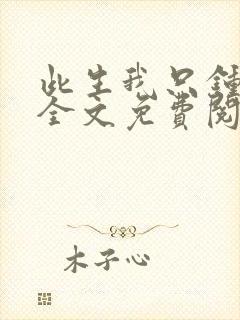 此生我只鍾
全文免費閱
木子心